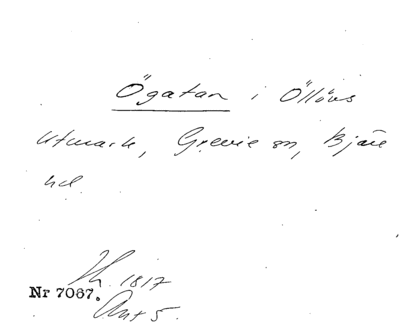 Ögatan i Öllövs
utmark, Grevie sn, Bjäre
hd.
Th. 1817
Nr 7067.
Ant 5.